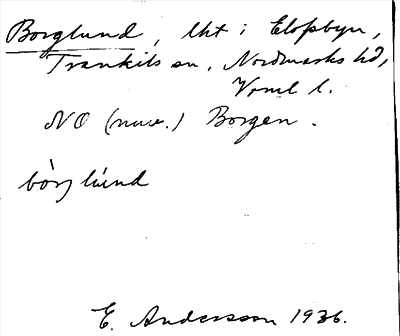 Borglund, lht i Elofsbyn,
Trankils sn, Nordmarks hd,
Vrml l.
NO (nuv.) Borgen.
bòrj lúnd
E. Andersson 1936.